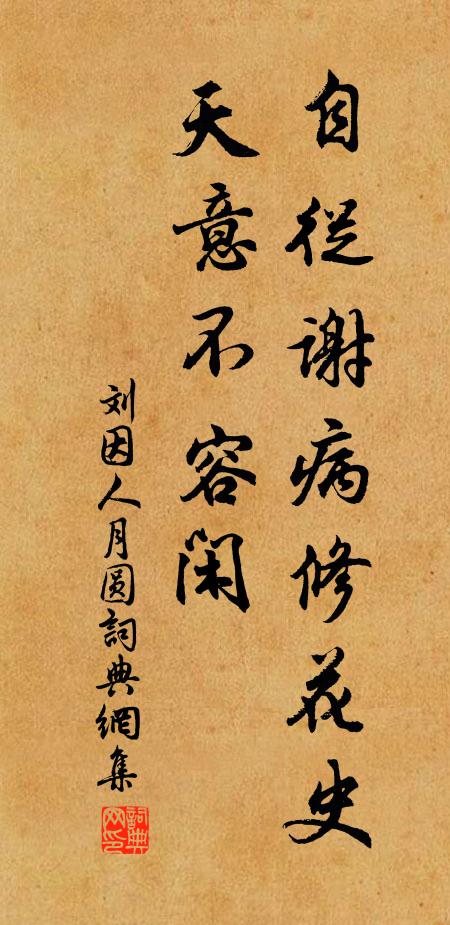 自從谢病修花史
天意不容閑
刘因人月圆詞典網集
詞典网印